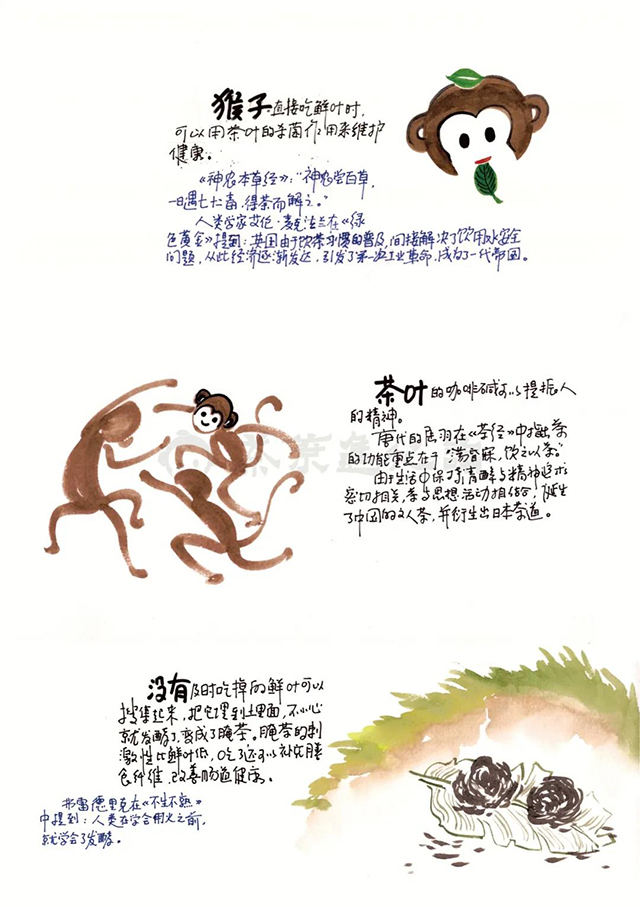 猴子直接吃鲜叶时,
可以用茶叶的杀菌作用来维护
健康。
《神农本草经》:“神农尝百草,
一日遇七十毒,得茶而解之。”
人类学家艾伦·麦克法兰在《绿
色黄金》提到:英国由于饮茶习惯的普及,间接解决了饮用水安全
问题,从此经济逐渐发达,引发了第一次工业革命,成为了一代帝国。
茶叶的咖啡碱可以提振人
的精神。
唐代的陆羽在《茶经》中指出茶
的功能重点在于“荡昏寐,饮之以茶”。
由于生活中保持清醒与精神追求
密切相关,茶与思想活动相结合,诞生
了中国的文人茶,并衍生出日本茶道。
没有及时吃掉的鲜叶可以
搜集起来,把它埋到土里面,不小心
就发酵了,变成了腌茶。腌茶的刺
激性比鲜叶低,吃了还可以补充膳
食纤维,改善肠道健康。
弗雷德里克在《不生不熟》
中提到:人类在学会用火之前,
就学会了发酵。